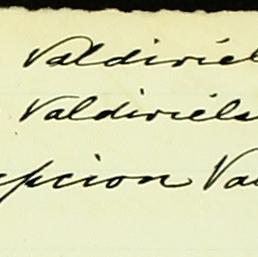 Valdiviél
Valdiviéls
epcion Va